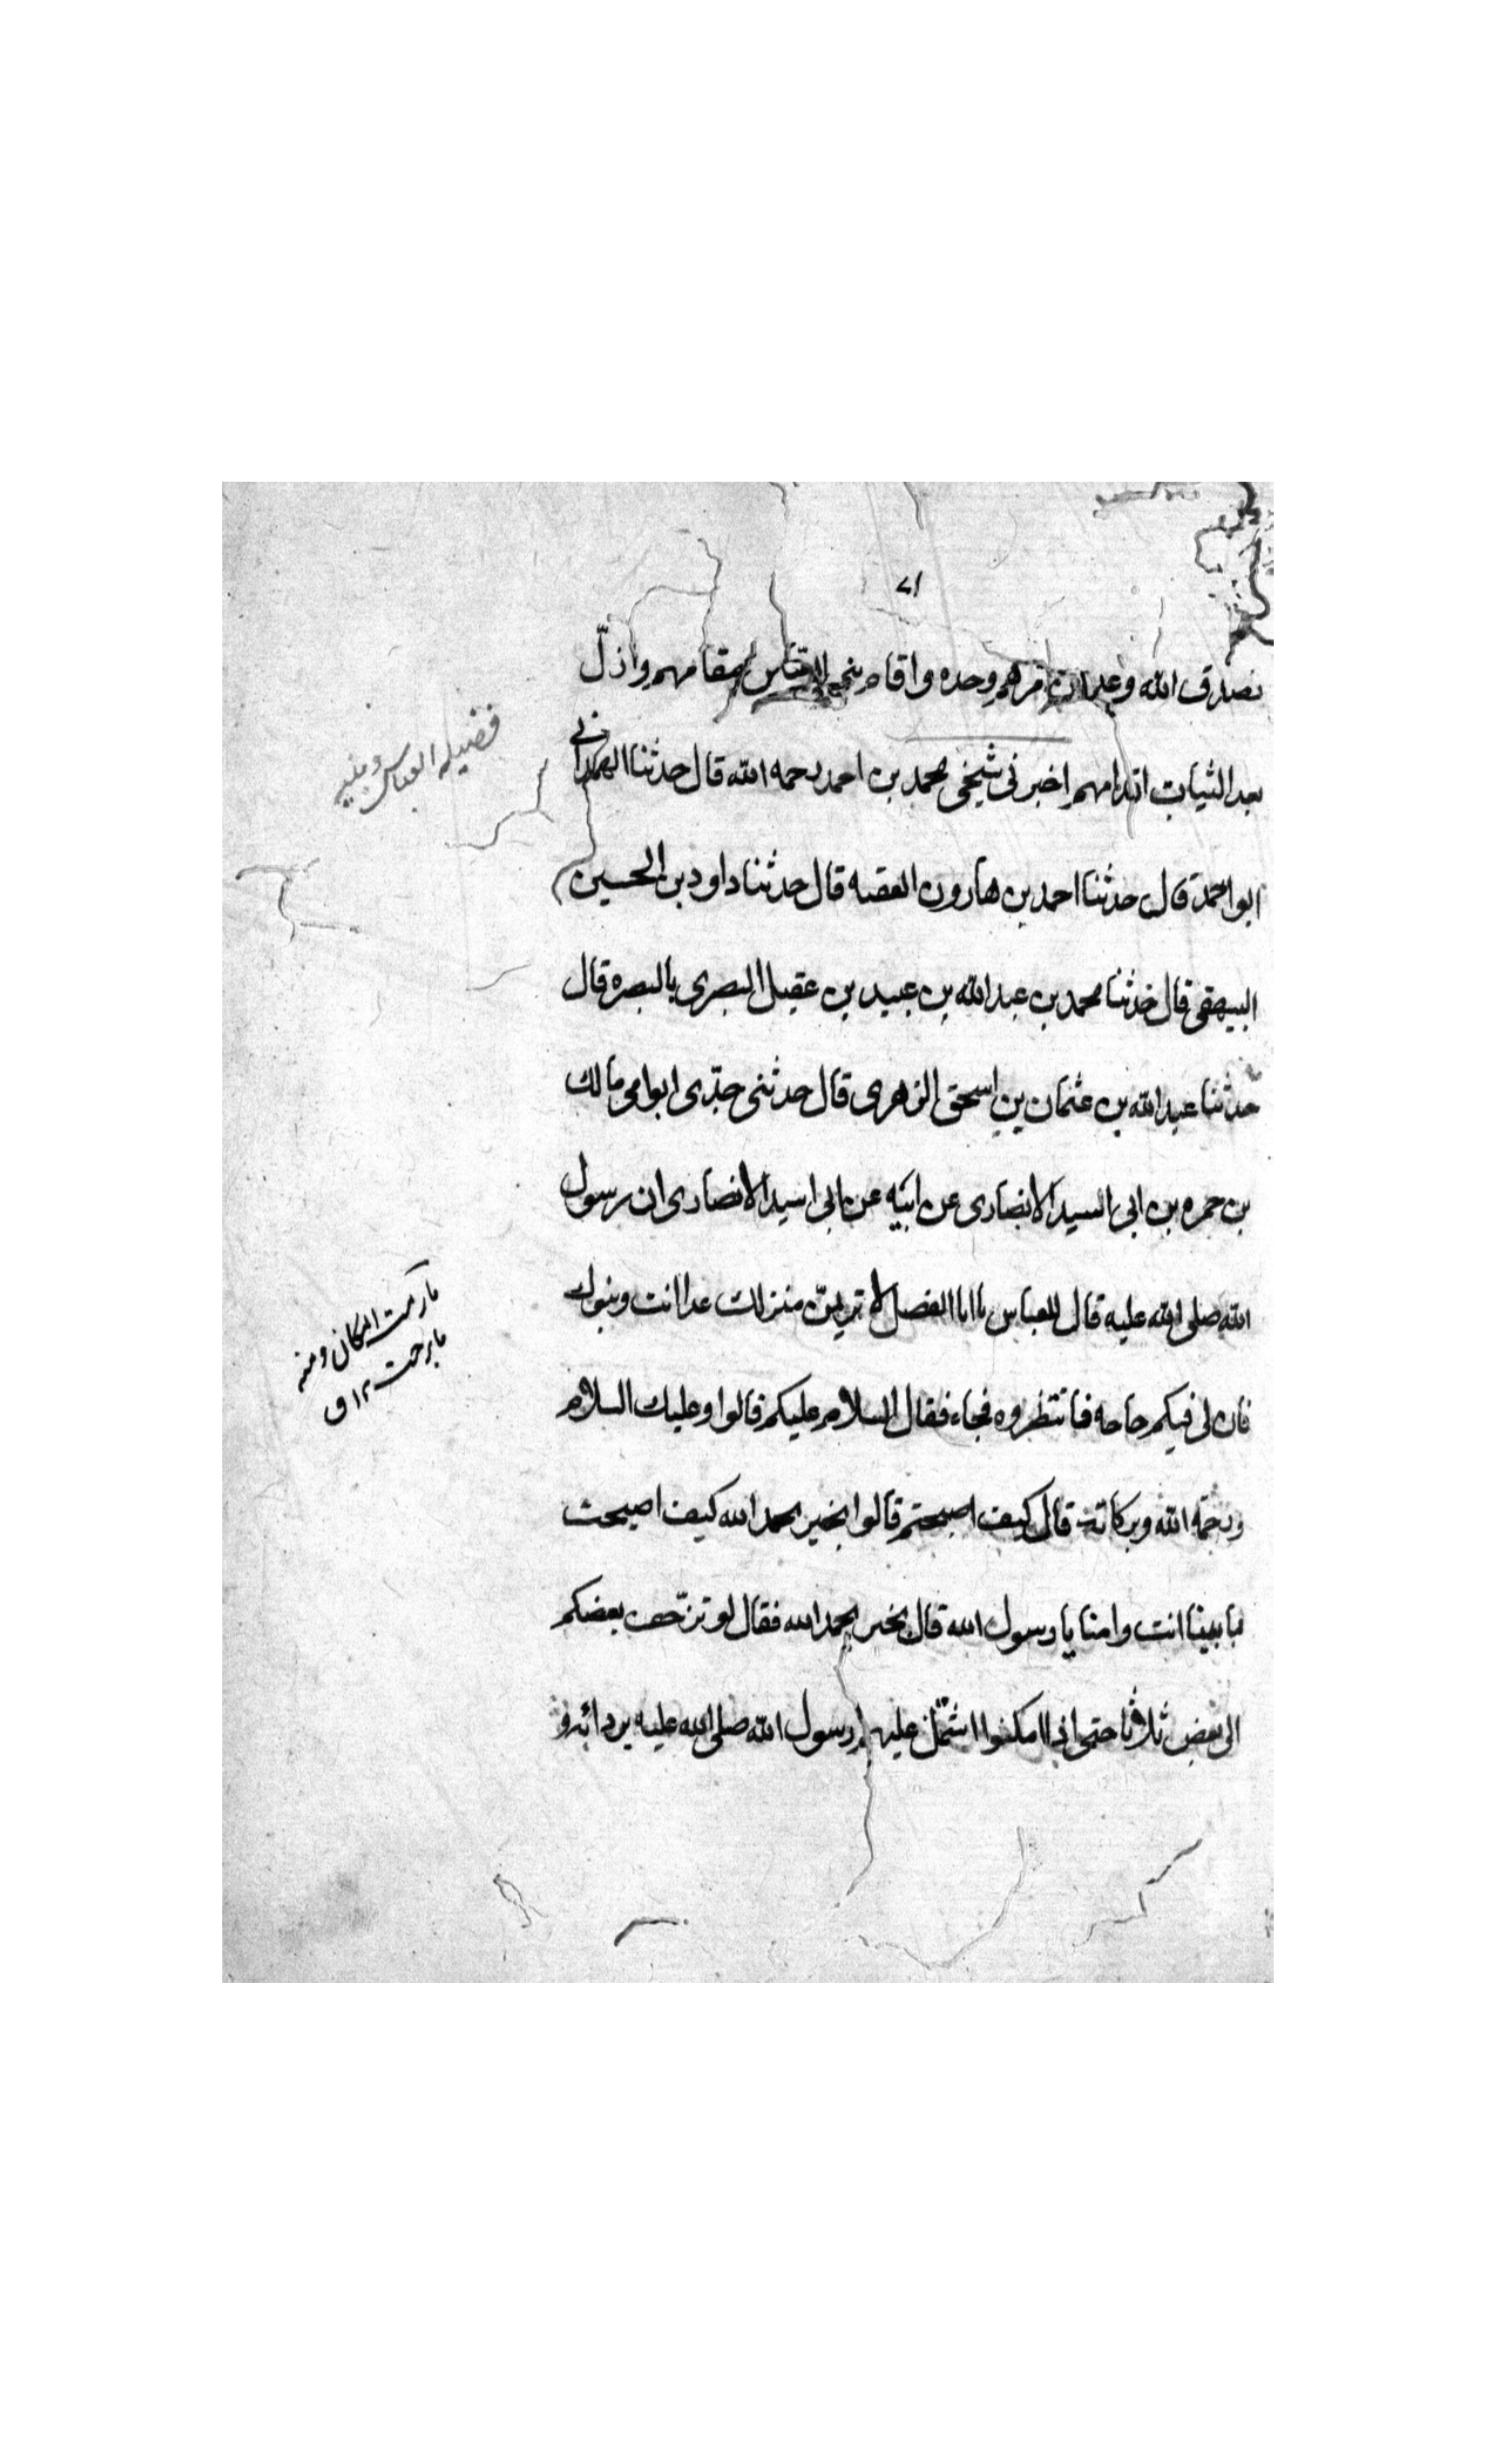 ٧١
تصدق الله وعلمان مرهم وحده واقام بنجم الاقتباس مقامهم واذلّ
بعد الثبات اقدامهم اخبرنى شيخى محمد بن احمد رحمه الله قال حدثنا الهمدانى
ابو احمد قال حدثنا احمد بن هارون الفقيه قال حدثنا داود بن الحسين
البيهقى قال حدثنا محمد بن عبد الله بن عبيد بن عقيل البصرى بالبصره قال
حدثنا عبد الله بن عثمان بن اسحق الزهرى قال حدثنى جدّى ابو امى مالك
بن حمزه بن ابى السيد الانصارى عن ابيه عن ابى اسيد الانصارى ان رسول
الله صلى الله عليه قال للعباس يا ابا الفضل لا تريمنّ منزلك غدا انت وبنوك
فان لى فيكم حاجه فانتظروه فجاء فقال السلام عليكم قالوا وعليك السلام
ورحمة الله وبركاته قال كيف اصبحتم قالوا بخير بحمد الله كيف اصبحت
بابينا انت وامنا يا رسول الله قال بخير بحمد الله فقال لو تزحف بعضكم
الى بعض ثلاثا حتى اذا امكنوا اشتمل عليهم رسول الله صلى الله عليه بردائه و
فضيله العباس وبنيه
مارمت المكان ومنه
مابرحت ١٢ ق